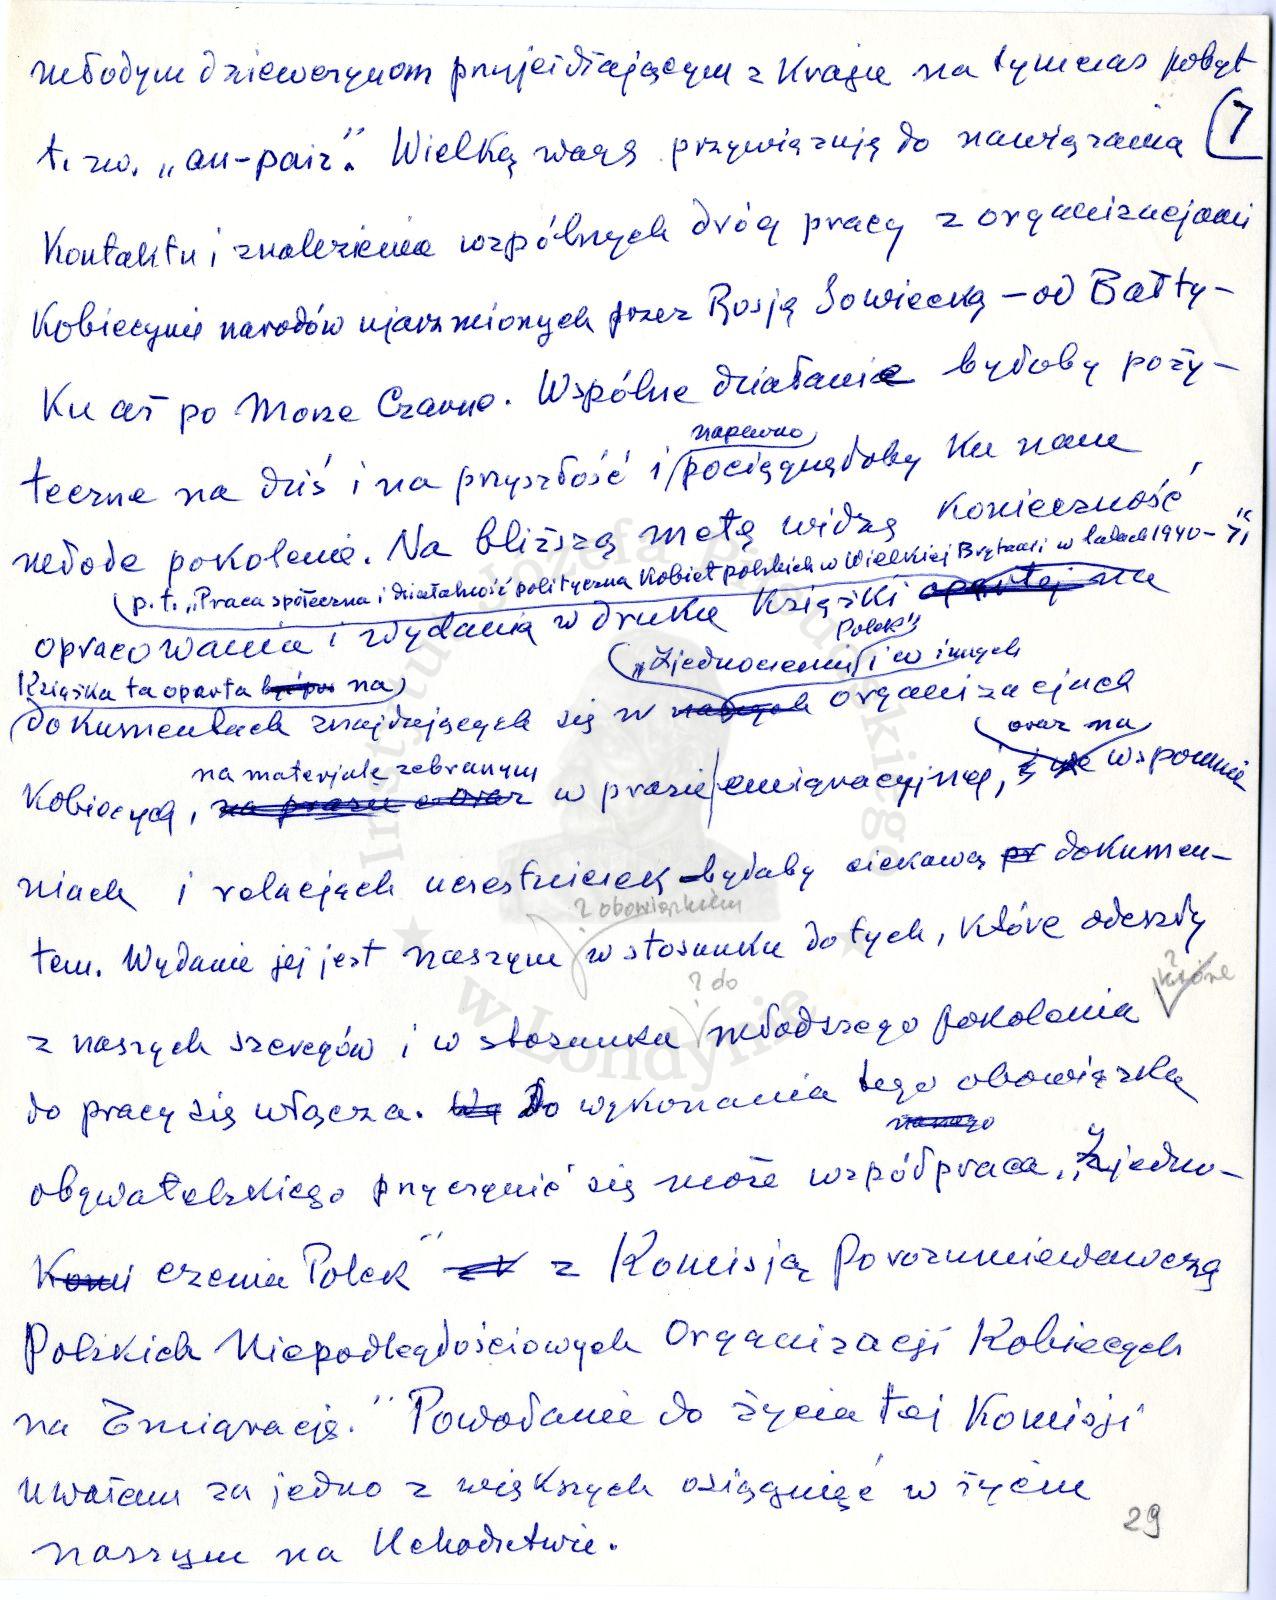 młodym dziewczynom przyjeżdżającym z Kraju na tymczas pobyt
t. zw. „au-pair". Wielką wagę przywiązuję do nawiązania
7
Kontaktu i znalezienia wspólnych dróg pracy z organizacjami
Kobiecymi narodów ujarzmionych przez Rosję Sowiecką – od Bałty-
Ku aż po Morze Czarne. Wspólne działanie byłoby poży-
napewno
teczne na dziś i na przyszłość i pociągnęłoby Ku nam
młode pokolenie. Na bliższą metę widzę Konieczność
p.t. „Praca społeczna i działalność polityczna Kobiet polskich w Wielkiej Brytanii w latach 1940-
opracowania i wydania w druku Książki opartej na
„Zjednoczeniu Polek" i w innych
Książka ta oparta na
dokumentach znajdujących się w naszych organizacjach
oraz na
na materjale zebranym
Kobiecych, na prasie oraz w prasie emigracyjnej, i we wspomnie
niach i relacjach uczestniczek byłaby ciekawą pr dokumen-
? obowiązkiem
tem. Wydanie jej jest naszym w stosunku do tych, które odeszły
? do
? które
z naszych szeregów i w stosunku młodszego pokolenia
do pracy się włącza. Wy Do wykonania tego obowiązku
naszego
obywatelskiego przyczynić się może współpraca „Zjedno-
Komi czenia Polek" z Komisją Porozumiewawczą
Polskich Niepodległościowych Organizacji Kobiecych
na Emigracji." Powołanie do życia tej Komisji
uważam za jedno z większych osiągnięć w życiu
naszym na Uchodźctwie.
29
Instytut Józefa Piłsudskiego
w Londynie